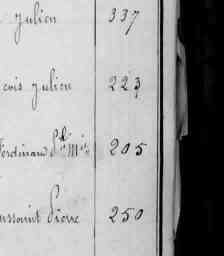 Julien 337
cois Julien 223
Ferdinand 205
oussaint Pierre 250